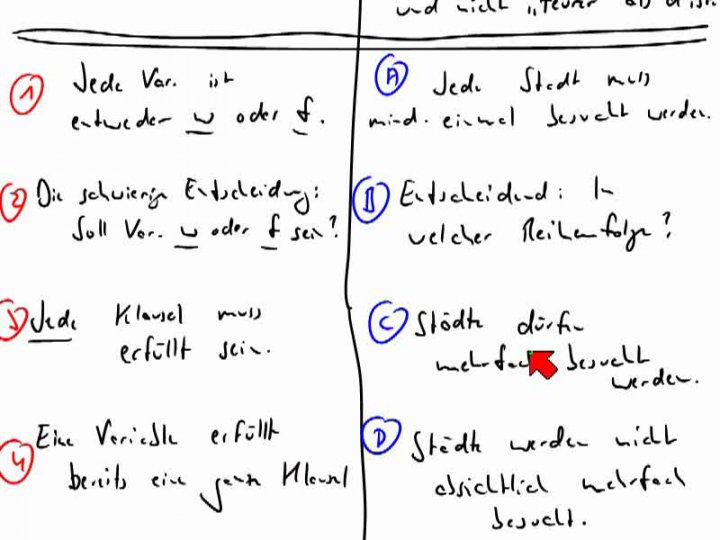 und nicht
1 Jede Var. ist
entweder w oder f.
2 Die schwierige Entscheidung:
Soll Var. w oder f sein?
3 Jede Klausel muss
erfüllt sein.
4 Eine Variable erfüllt
bereits eine ganze Klausel
A Jede Stadt muss
mind. einmal besucht werden.
B Entscheidend: In
welcher Reihenfolge?
C Städte dürfen
mehrfach besucht
werden.
D Städte werden nicht
absichtlich mehrfach
besucht.